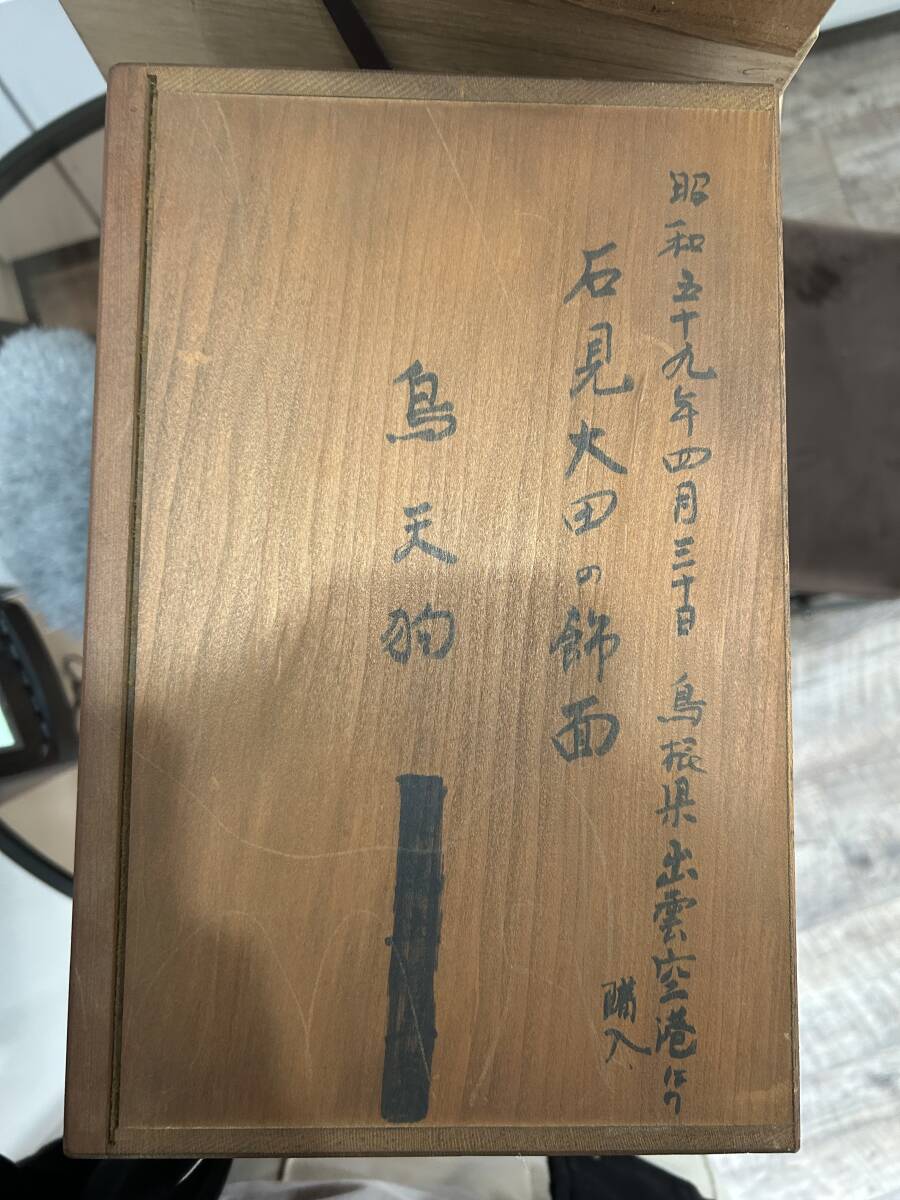 昭和五十九年四月三十日 島根県出雲空港にて
購入
石見大田の飾面
烏天狗